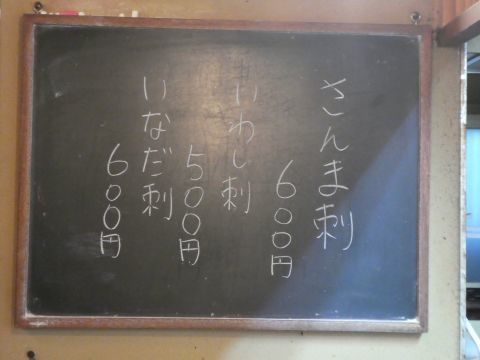 さんま刺
600円
いわし刺
500円
いなだ刺
600円